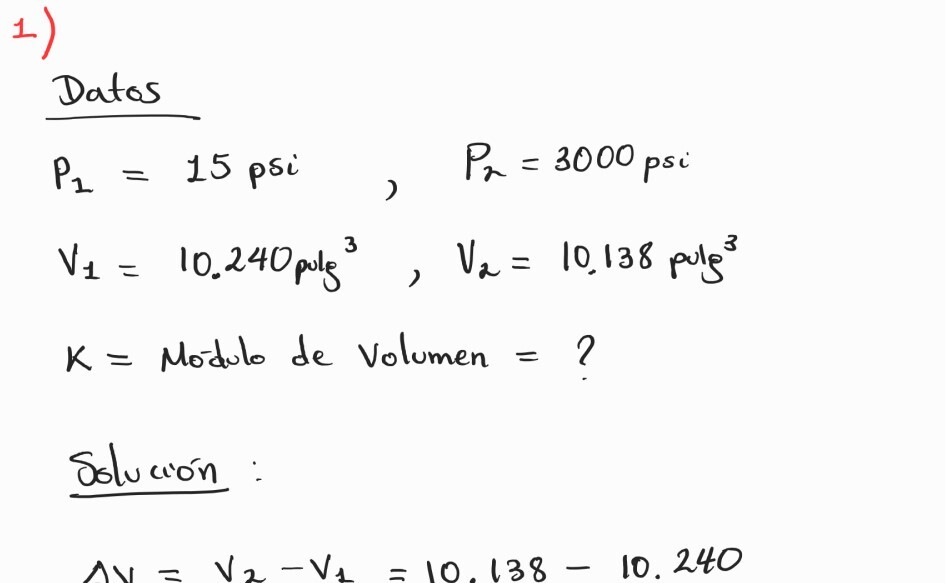 1)
Datos
P₁ = 15 psi , P₂ = 3000 psi
V₁ = 10.240 pulg³ , V₂ = 10.138 pulg³
K = Módulo de Volumen = ?
Solución :
ΔV = V₂ - V₁ = 10.138 - 10.240